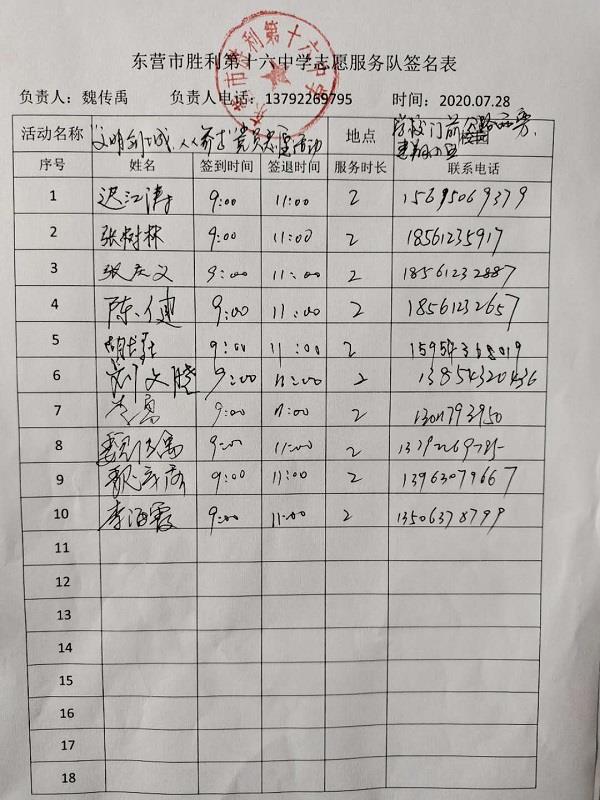 东营市胜利第十六中学志愿服务队签名表
负责人：魏传禹 负责人电话：13792269795 时间：2020.07.28
活动名称 "文明创城,人人参与"党员志愿活动 地点 学校门前公路两旁、
序号 姓名 签到时间 签退时间 服务时长 联系电话
1 迟江涛 9:00 11:00 2 15695069379
2 张树林 9:00 11:00 2 18561235917
3 张庆文 9:00 11:00 2 18561232887
4 陈健 9:00 11:00 2 18561232657
5 9:00 11:00 2
6 刘文腾 9:00 11:00 2 13854320436
7 9:00 11:00 2
8 魏传禹 9:00 11:00 2
9 9:00 11:00 2 13963079667
10 李海霞 9:00 11:00 2 13506378799
11
12
13
14
15
16
17
18